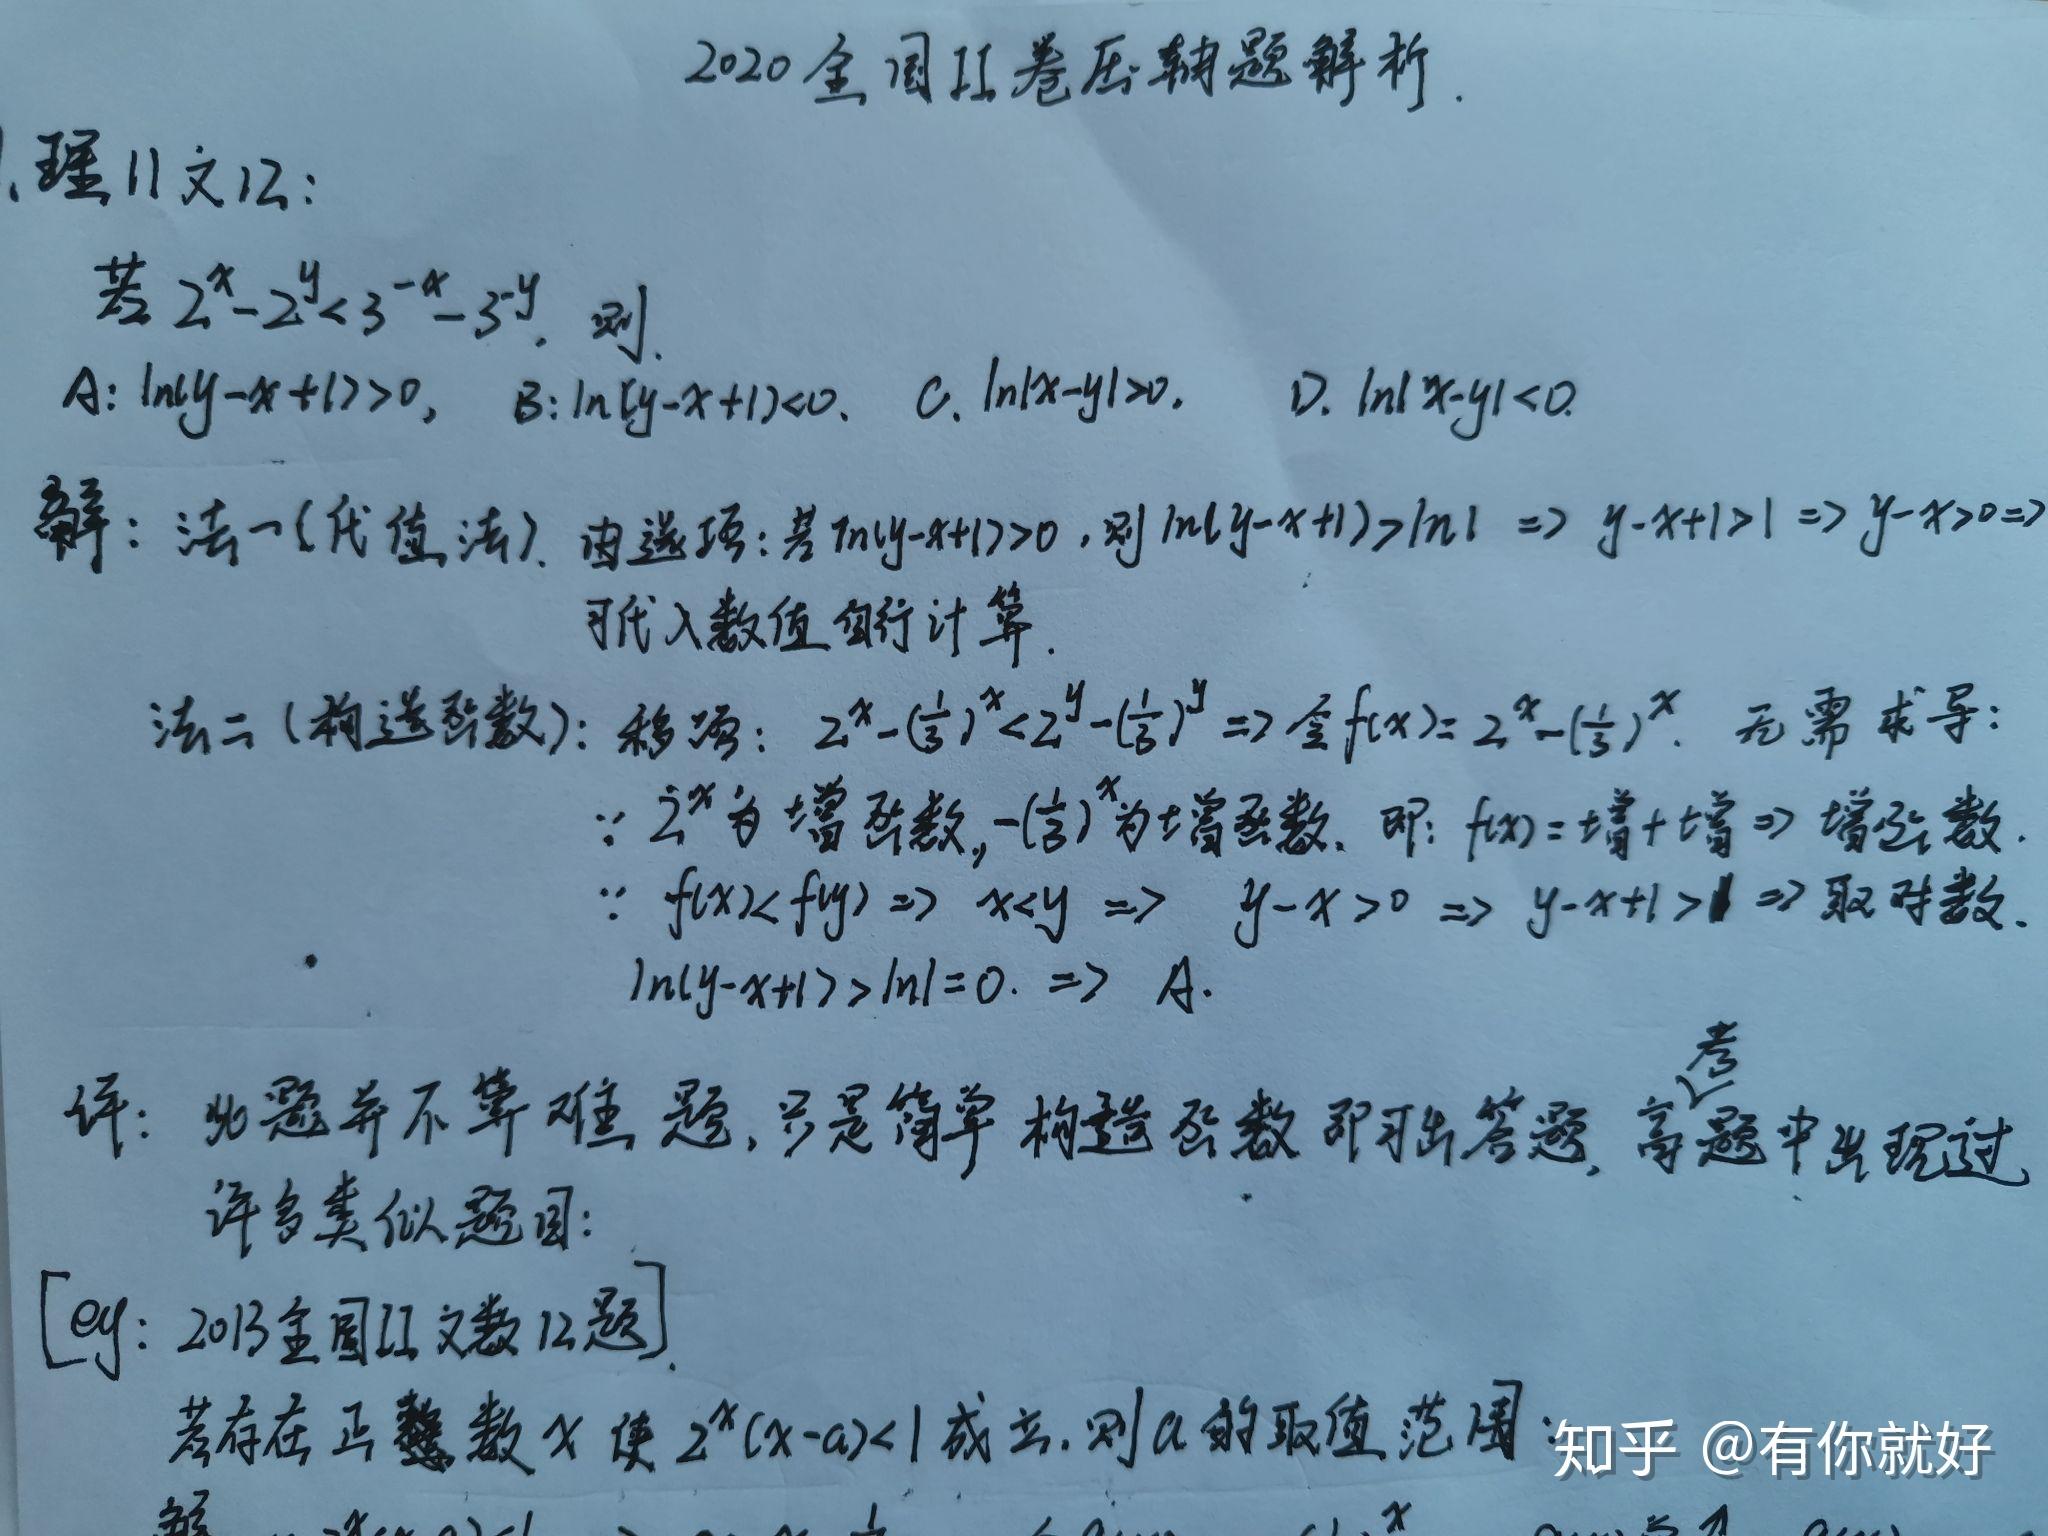 2020全国II卷压轴题解析.
1.理11文12:
若2^x-2^y<3^{-x}-3^{-y}, 则.
A: ln(y-x+1)>0, B: ln(y-x+1)<0. C. ln|x-y|>0. D. ln|x-y|<0.
解: 法一(代值法). 由选项: 若ln(y-x+1)>0, 则ln(y-x+1)>ln1 => y-x+1>1 => y-x>0 =>
可代入数值自行计算.
法二(构造函数): 移项: 2^x-(1/3)^x<2^y-(1/3)^y => 令f(x)=2^x-(1/3)^x. 无需求导:
∵ 2^x为增函数, -(1/3)^x为增函数. 即: f(x)=增+增 => 增函数.
∵ f(x)<f(y) => x<y => y-x>0 => y-x+1>1 => 取对数.
ln(y-x+1)>ln1=0. => A.
评: 此题并不算难题, 只是简单构造函数即可出答题, 高考题中出现过
许多类似题目:
[eg: 2013全国II文数12题].
若存在正数x使2^x(x-a)<1成立, 则a的取值范围:
解
知乎 @有你就好